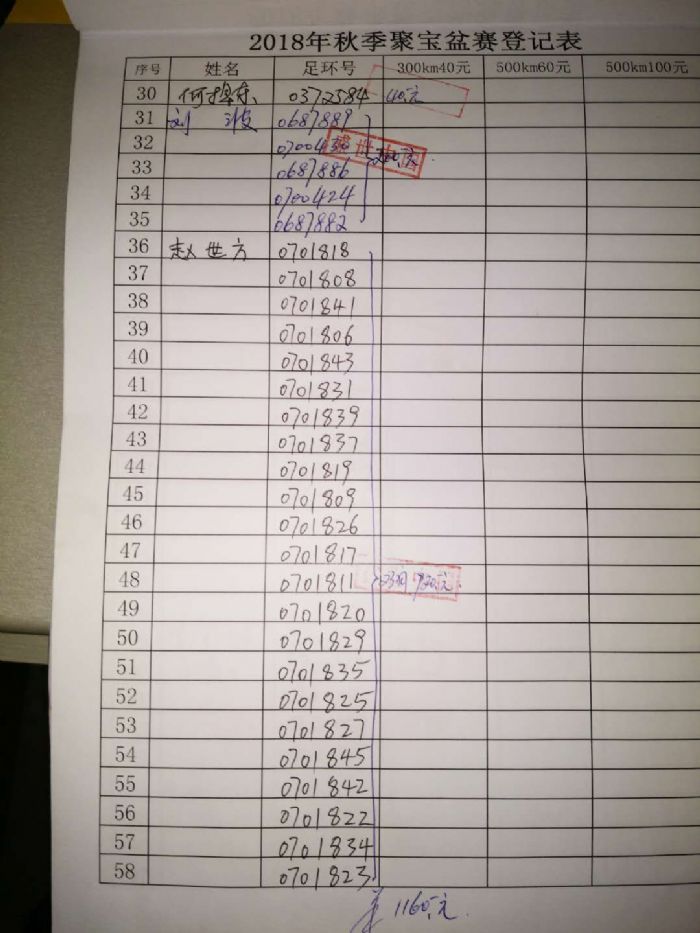 2018年秋季聚宝盆赛登记表
序号 姓名 足环号 300km40元 500km60元 500km100元
30 0372584 40元
31 刘波 0687889
32 0700430
33 0687886 200元
34 0700424
35 0687882
36 赵世方 0701818
37 0701808
38 0701841
39 0701806
40 0701843
41 0701831
42 0701839
43 0701837
44 0701819
45 0701809
46 0701826
47 0701817
48 0701811 920元
49 0701820
50 0701829
51 0701835
52 0701825
53 0701827
54 0701845
55 0701842
56 0701822
57 0701834
58 0701823
1160元